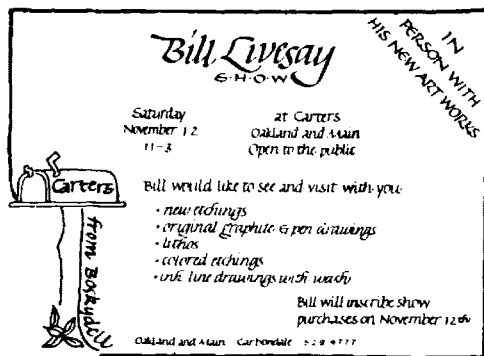 IN
PERSON WITH
HIS NEW ART WORKS
Bill Livesay
S·H·O·W
Saturday
November 12
11-3
at Carters
Oakland and Main
Open to the public
Carters
from Boskydell
Bill would like to see and visit with you
· new etchings
· original graphite & pen drawings
· lithos
· colored etchings
· ink line drawings with wash
Bill will inscribe show
purchases on November 12th
Oakland and Main Carbondale